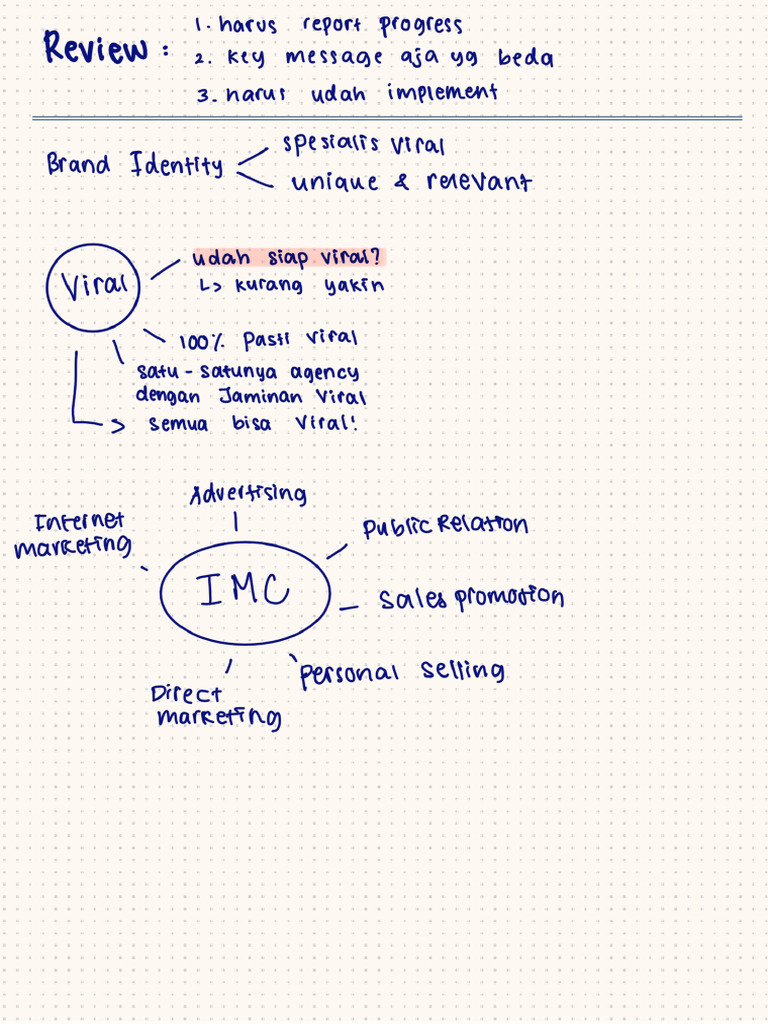 Review :
1. harus report progress
2. key message aja yg beda
3. harus udah implement
Brand Identity
spesialis viral
unique & relevant
Viral
udah siap viral?
↳ kurang yakin
100% Pasti viral
satu - satunya agency
dengan Jaminan Viral
semua bisa Viral!
Advertising
Internet
marketing
Public Relation
IMC
Sales promotion
Personal Selling
Direct
marketing